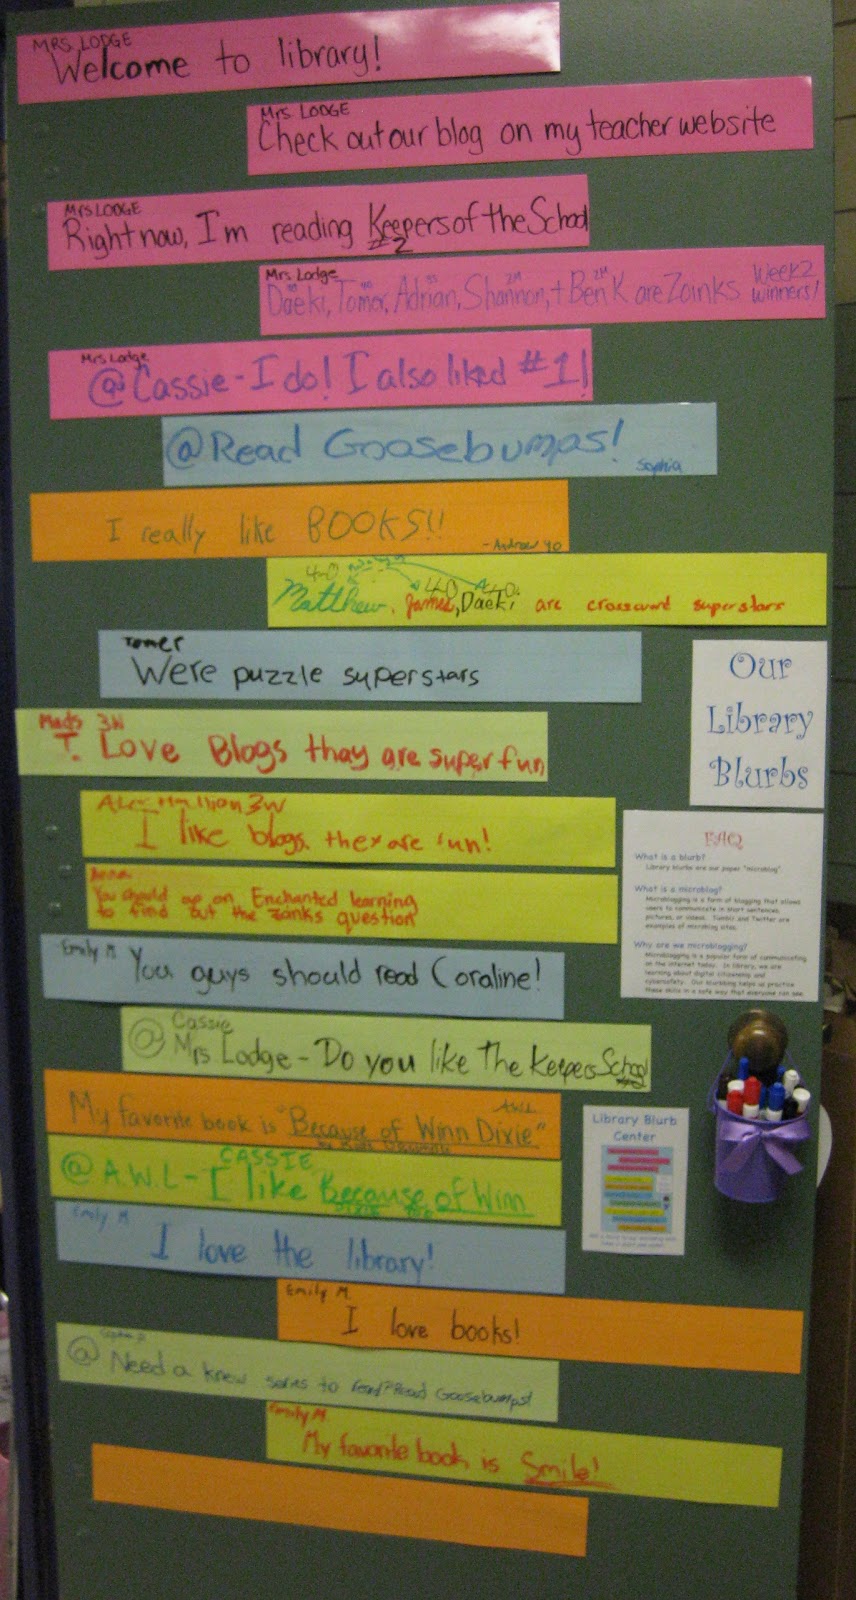 MRS. LODGE
Welcome to library!
Mrs. LODGE
Check out our blog on my teacher website
Mrs LODGE
Right now, I'm reading Keepers of the School
#2
Mrs. Lodge
Daeki, Tomer, Adrian, Shannon, + Ben K are Zoinks Week 2 winners!
Mrs Lodge
@Cassie - I do! I also liked #1!
@Read Goosebumps!
Sophia
I really like BOOKS!!
- Andrew 40
4-0 4-0 4-0
Matthew, James, Daeki are crossword superstars
Tomer
Were puzzle superstars
Our
Library
Blurbs
Mads 3W
I. Love Blogs thay are super fun
3W
I like blogs. they are fun!
FAQ
What is a blurb?
Library blurbs are our paper "microblog"
What is a microblog?
Microblogging is a form of blogging that allows
users to communicate in short sentences,
pictures, or videos. Tumblr and Twitter are
examples of microblog sites.
Why are we microblogging?
Microblogging is a popular form of communicating
on the internet today. In library, we are
learning about digital citizenship and
cybersafety. Our blurbing helps us practice
these skills in a safe way that everyone can see.
Anna
You should go on Enchanted learning
to find out the zonks question
Emily M
You guys should read Coraline!
Cassie
@ Mrs Lodge - Do you like The Keepers School
A.W.L
My favorite book is "Because of Winn Dixie"
CASSIE
@ A.W.L - I like Because of Winn
Dixie too
Library Blurb
Center
Emily M
I love the library!
Emily M.
I love books!
@ Need a knew series to read? Read Goosebumps!
Emily M.
My favorite book is Smile!